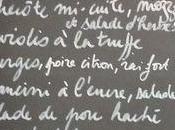 mi-cuite, mozz
et salade d'herbes
à la truffe
poire citron, raifort
à l'encre, salade
lade de porc haché